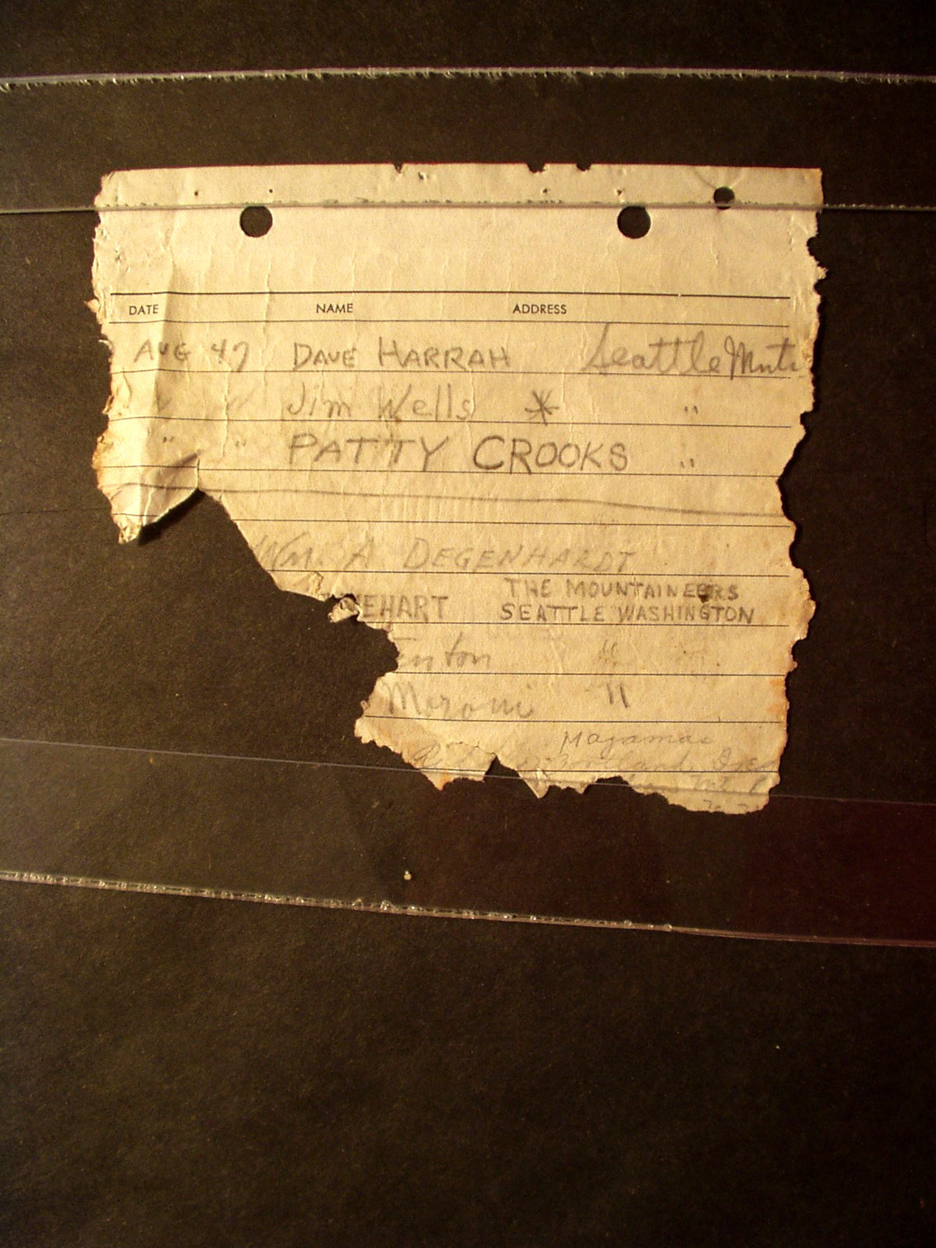 DATE NAME ADDRESS
AUG 47 DAVE HARRAH Seattle Mnts
" " Jim Wells * "
" " PATTY CROOKS "
WM. A DEGENHARDT
EHART THE MOUNTAINEERS
SEATTLE WASHINGTON
enton "
Moroni "
Mazamas
Portland, Ore